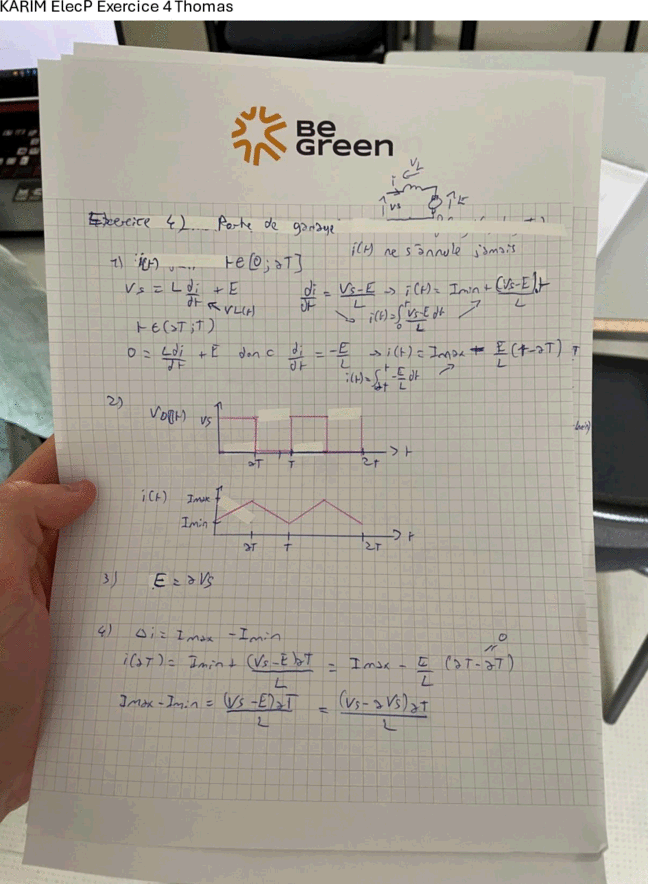 KARIM ElecP Exercice 4 Thomas
Be
Green
VL
i
Vs
E
Exercice 4) Porte de garage
i(t) ne s'annule jamais
1) i(t) t∈[0;αT]
Vs = L di/dt + E di/dt = (Vs-E)/L → i(t) = Imin + (Vs-E)/L t
VL(t) i(t)=∫₀ᵗ (Vs-E)/L dt
t∈(αT;T)
0 = L di/dt + E donc di/dt = -E/L → i(t) = Imax - E/L (t-αT)
i(t)=∫αTᵗ -E/L dt
2)
VD(t) Vs
αT T 2T t
i(t) Imax
Imin
αT T 2T t
3) E = αVs
4) Δi = Imax - Imin
0
i(αT) = Imin + (Vs-E)αT/L = Imax - E/L (αT-αT)
Imax-Imin = (Vs-E)αT/L = (Vs-αVs)αT/L